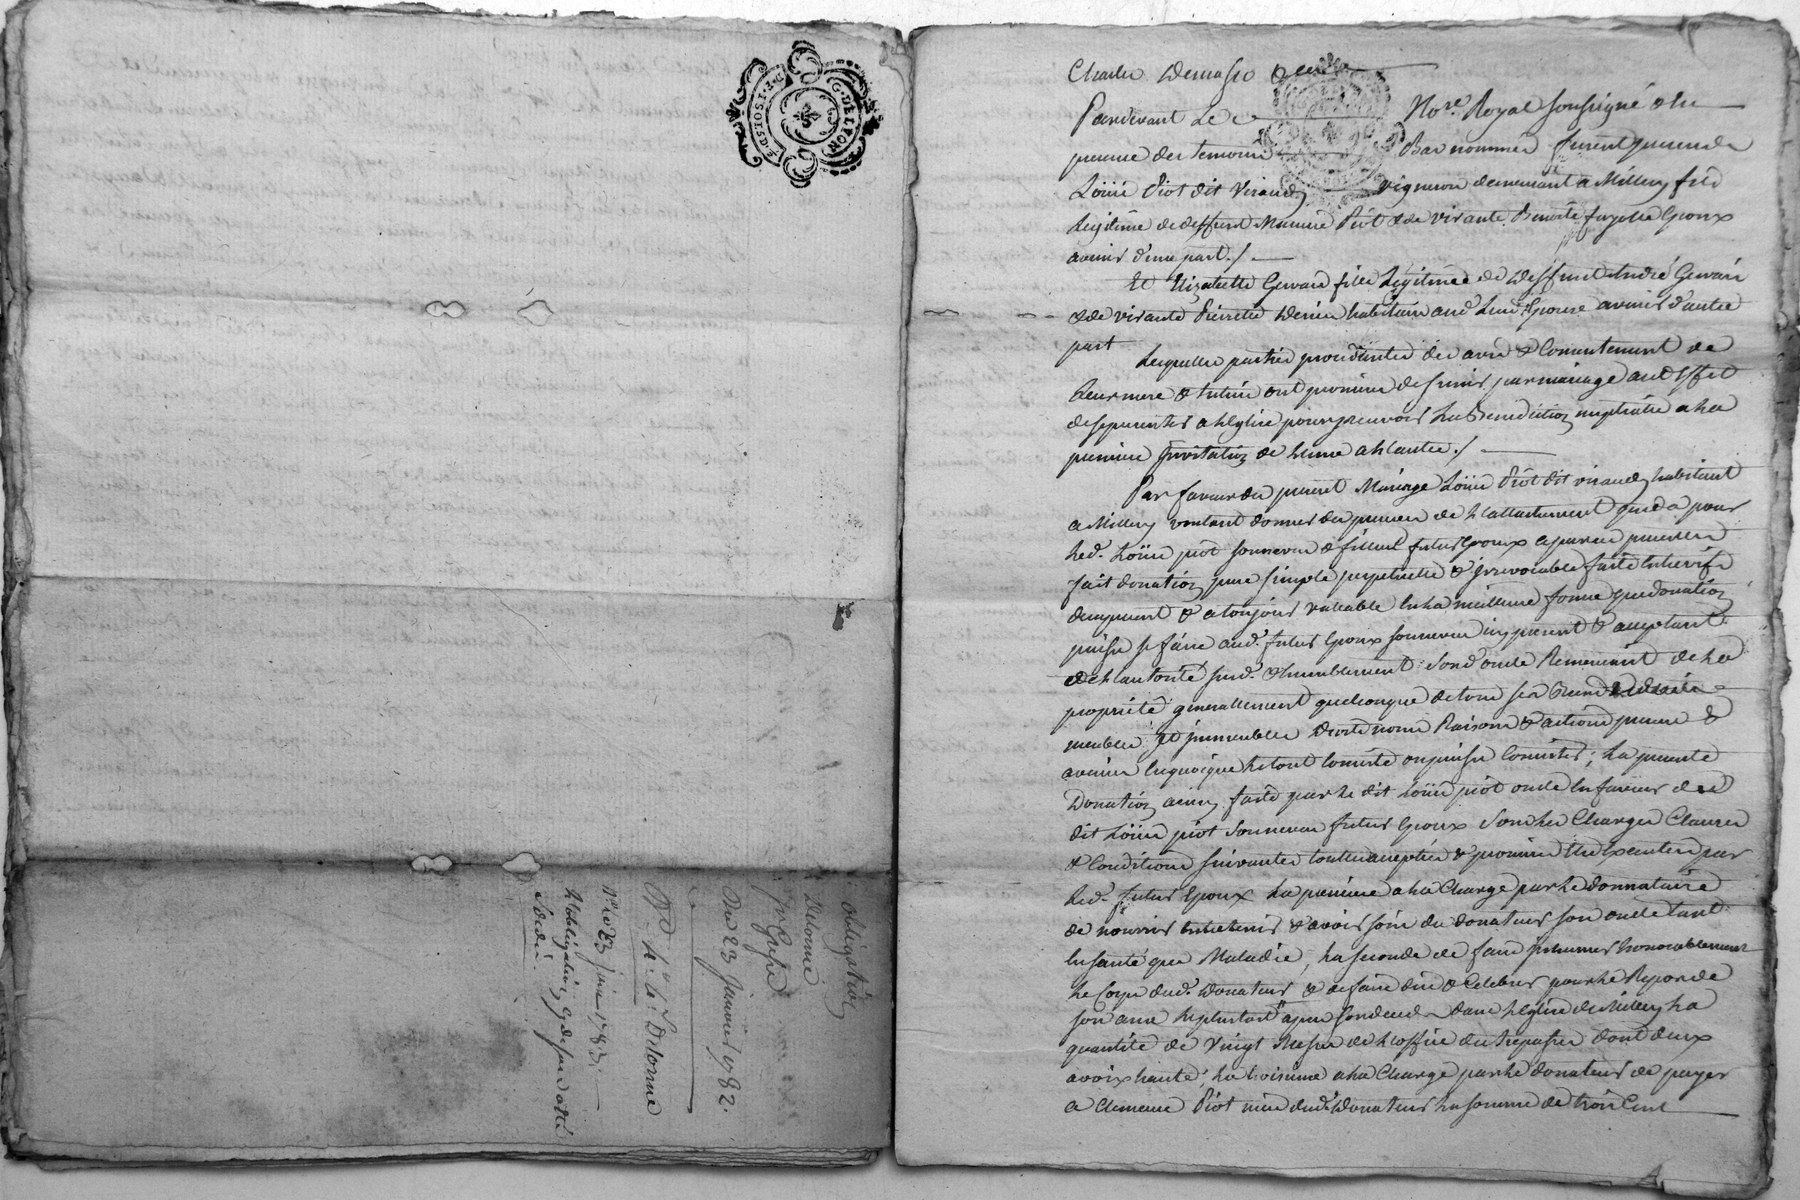 G. DE LYON
obligation
Delorme
Du 23 janvier 1782.
Delorme
1783
L'obligation
Pardevant Le No.re Royal soussigné & en
presence des temoins Bas nommés furent presents
Loüis Piot dit Viraud vigneron demeurant a Millery fils
Legitime de deffunt Piot & de vivante Benoite fayelle Epoux
avenir d'une part ./.
Et Elizabeth Gervais fille Legitime de deffunt André Gervais
& de vivante Pierrette habitant aud. lieu Epouse avenir d'autre
part
Lesquelles parties procedantes de avis & Consentement de
Leur mere & ont promis de s'unir par mariage a cet effet
de se presenter a L'Eglise pour y recevoir La Benediction nuptialle a La
premiere invitation de L'une a L'autre ./.
Par faveur du present Mariage Loüis Piot dit viraud habitant
a Millery voulant donner des preuves de L'attachement qu'il a pour
Led. Loüis piot son neveu & filleul futur Epoux a par ces presentes
fait donation pure simple perpetuelle & irrevocable faite entre vifs
a present & a toujours valable En La meilleure forme que donation
puisse se faire aud. futur Epoux son neveu icy present & acceptant
de L'autorité susd. & humblement Sond. oncle Remerciant de La
propriété generallement quelconque de tous ses Biens
meubles et immeubles Droits noms Raisons & actions presens &
avenir En quoi que Le tout Consiste ou puisse Consister; La presente
Donation ainsy faite par Le dit Loüis piot oncle En faveur du
dit Loüis piot Son neveu futur Epoux Sous Les Charges Clauses
& Conditions Suivantes toutes acceptées & promises Etre Executées par
Led. futur Epoux La premiere a La Charge par Le donnataire
de nourrir Entretenir & avoir soin du donateur son oncle tant
En santé que Maladie, La seconde de faire inhumer honorablement
Le Corps dud. Donateur & de faire dire & Celebrer pour Le Repos de
son ame Le plustost apres son deceds dans L'Eglise de Millery La
quantité de Vingt Messes de L'office des trepassés dont deux
a voix haute; La troisieme a La Charge par Le donateur de payer
a Clemence Piot niece dud. Donateur La somme de trois Cent